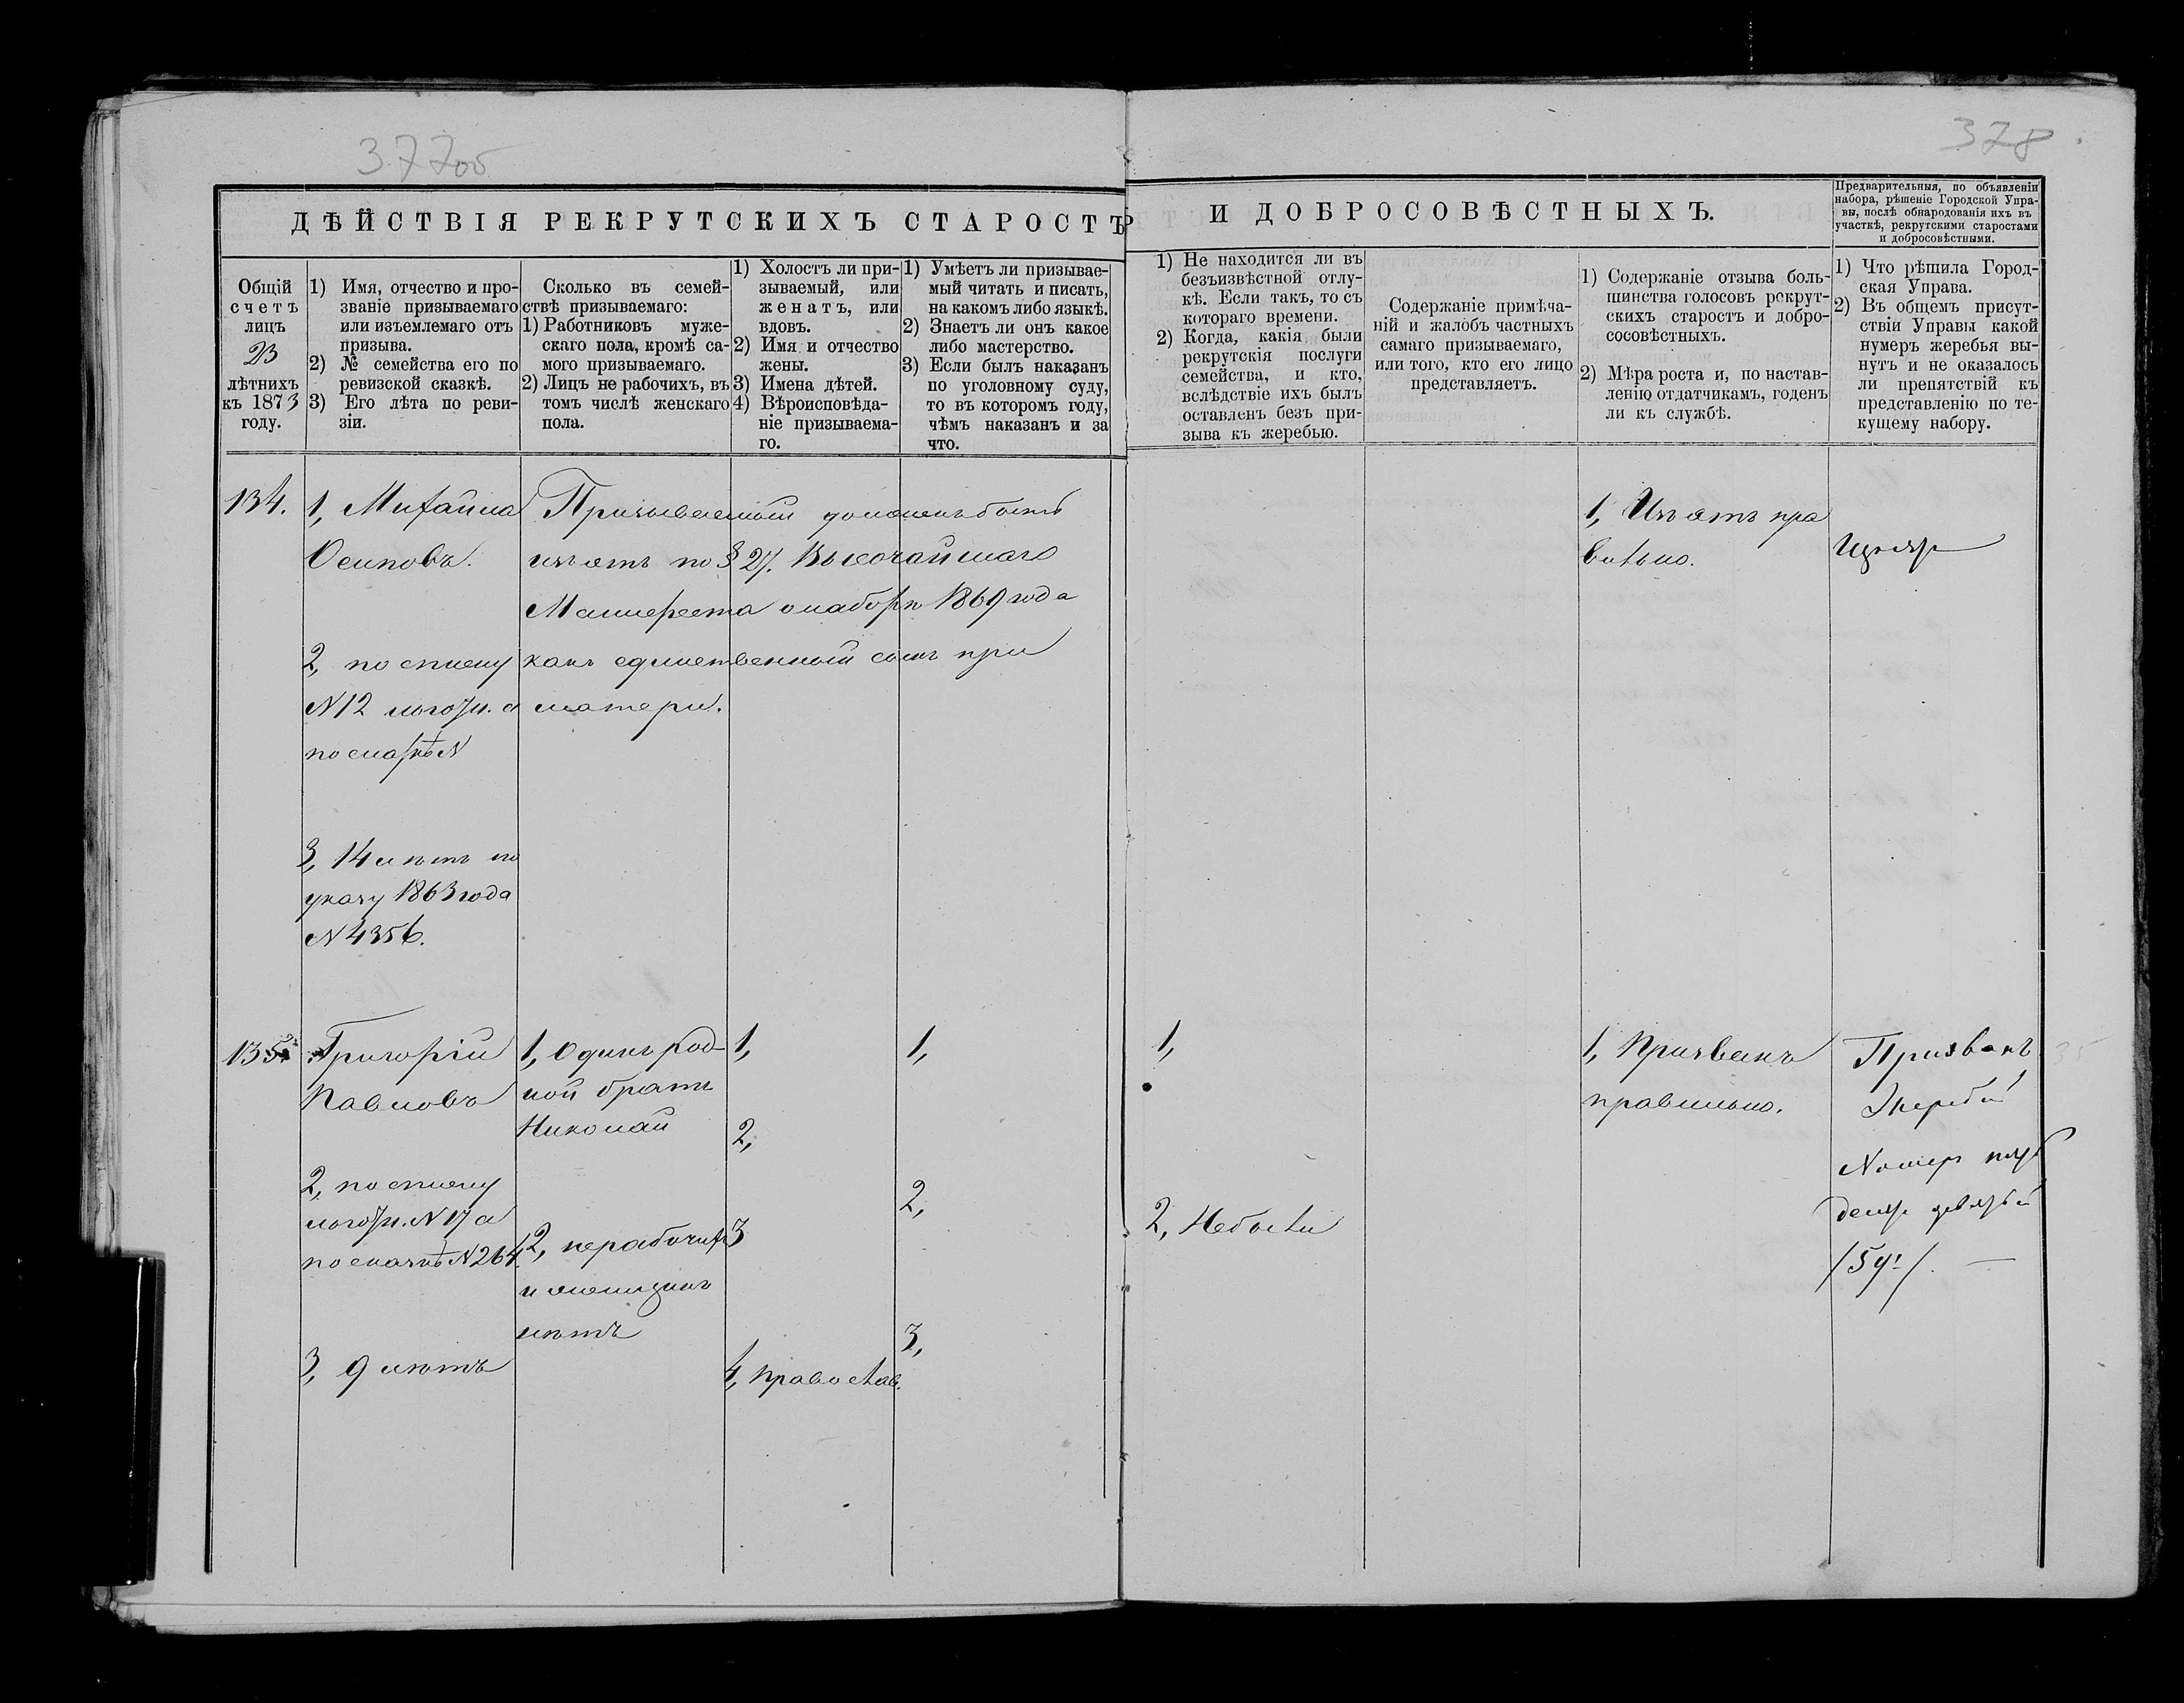 377об
378
ДѢЙСТВІЯ РЕКРУТСКИХЪ СТАРОСТЪ
И ДОБРОСОВѢСТНЫХЪ.
Предварительныя, по объявленіи
набора, рѣшеніе Городской Упра-
вы, послѣ обнародованія ихъ въ
участкѣ, рекрутскими старостами
и добросовѣстными.
Общій
счетъ
лицъ
23
лѣтнихъ
къ 1873
году.
1) Имя, отчество и про-
званіе призываемаго
или изъемлемаго отъ
призыва.
2) № семейства его по
ревизской сказкѣ.
3) Его лѣта по реви-
зіи.
Сколько въ семей-
ствѣ призываемаго:
1) Работниковъ муже-
скаго пола, кромѣ са-
мого призываемаго.
2) Лицъ не рабочихъ, въ
томъ числѣ женскаго
пола.
1) Холостъ ли при-
зываемый, или
женатъ, или
вдовъ.
2) Имя и отчество
жены.
3) Имена дѣтей.
4) Вѣроисповѣда-
ніе призываема-
го.
1) Умѣетъ ли призывае-
мый читать и писать,
на какомъ либо языкѣ.
2) Знаетъ ли онъ какое
либо мастерство.
3) Если былъ наказанъ
по уголовному суду,
то въ которомъ году,
чѣмъ наказанъ и за
что.
1) Не находится ли въ
безъизвѣстной отлу-
кѣ. Если такъ, то съ
котораго времени.
2) Когда, какія были
рекрутскія послуги
семейства, и кто,
вслѣдствіе ихъ былъ
оставленъ безъ при-
зыва къ жеребью.
Содержаніе примѣча-
ній и жалобъ частныхъ
самаго призываемаго,
или того, кто его лицо
представляетъ.
1) Содержаніе отзыва боль-
шинства голосовъ рекрут-
скихъ старостъ и добро-
сосовѣстныхъ.
2) Мѣра роста и, по настав-
ленію отдатчикамъ, годенъ
ли къ службѣ.
1) Что рѣшила Город-
ская Управа.
2) Въ общемъ присут-
ствіи Управы какой
нумеръ жеребья вы-
нутъ и не оказалось
ли препятствій къ
представленію по те-
кущему набору.
134.
1, Михаила
Осиповъ.
2, по списку
N 12 льготн. а
по сказкѣ N
3, 14 лѣтъ по
указу 1863 года
N 4356.
Призываемый долженъ быть
изъятъ по § 27. Высочайшаго
Манифеста о наборѣ 1869 года
какъ единственный сынъ при
матери.
1, Изъятъ пра
вильно.
135.
Григорій
Павловъ
2, по списку
льготн. N 17 а
по сказкѣ N 264.
3, 9 лѣтъ
1, Одинъ род-
ной братъ
Николай
2, нерабочихъ
и женщинъ
нѣтъ
1,
2,
3
4, Православ.
1,
2,
3,
1,
2, Небыли
1, Призванъ
правильно.
Призванъ
Жеребій
Номеръ пять
десят девятый
/59./. —